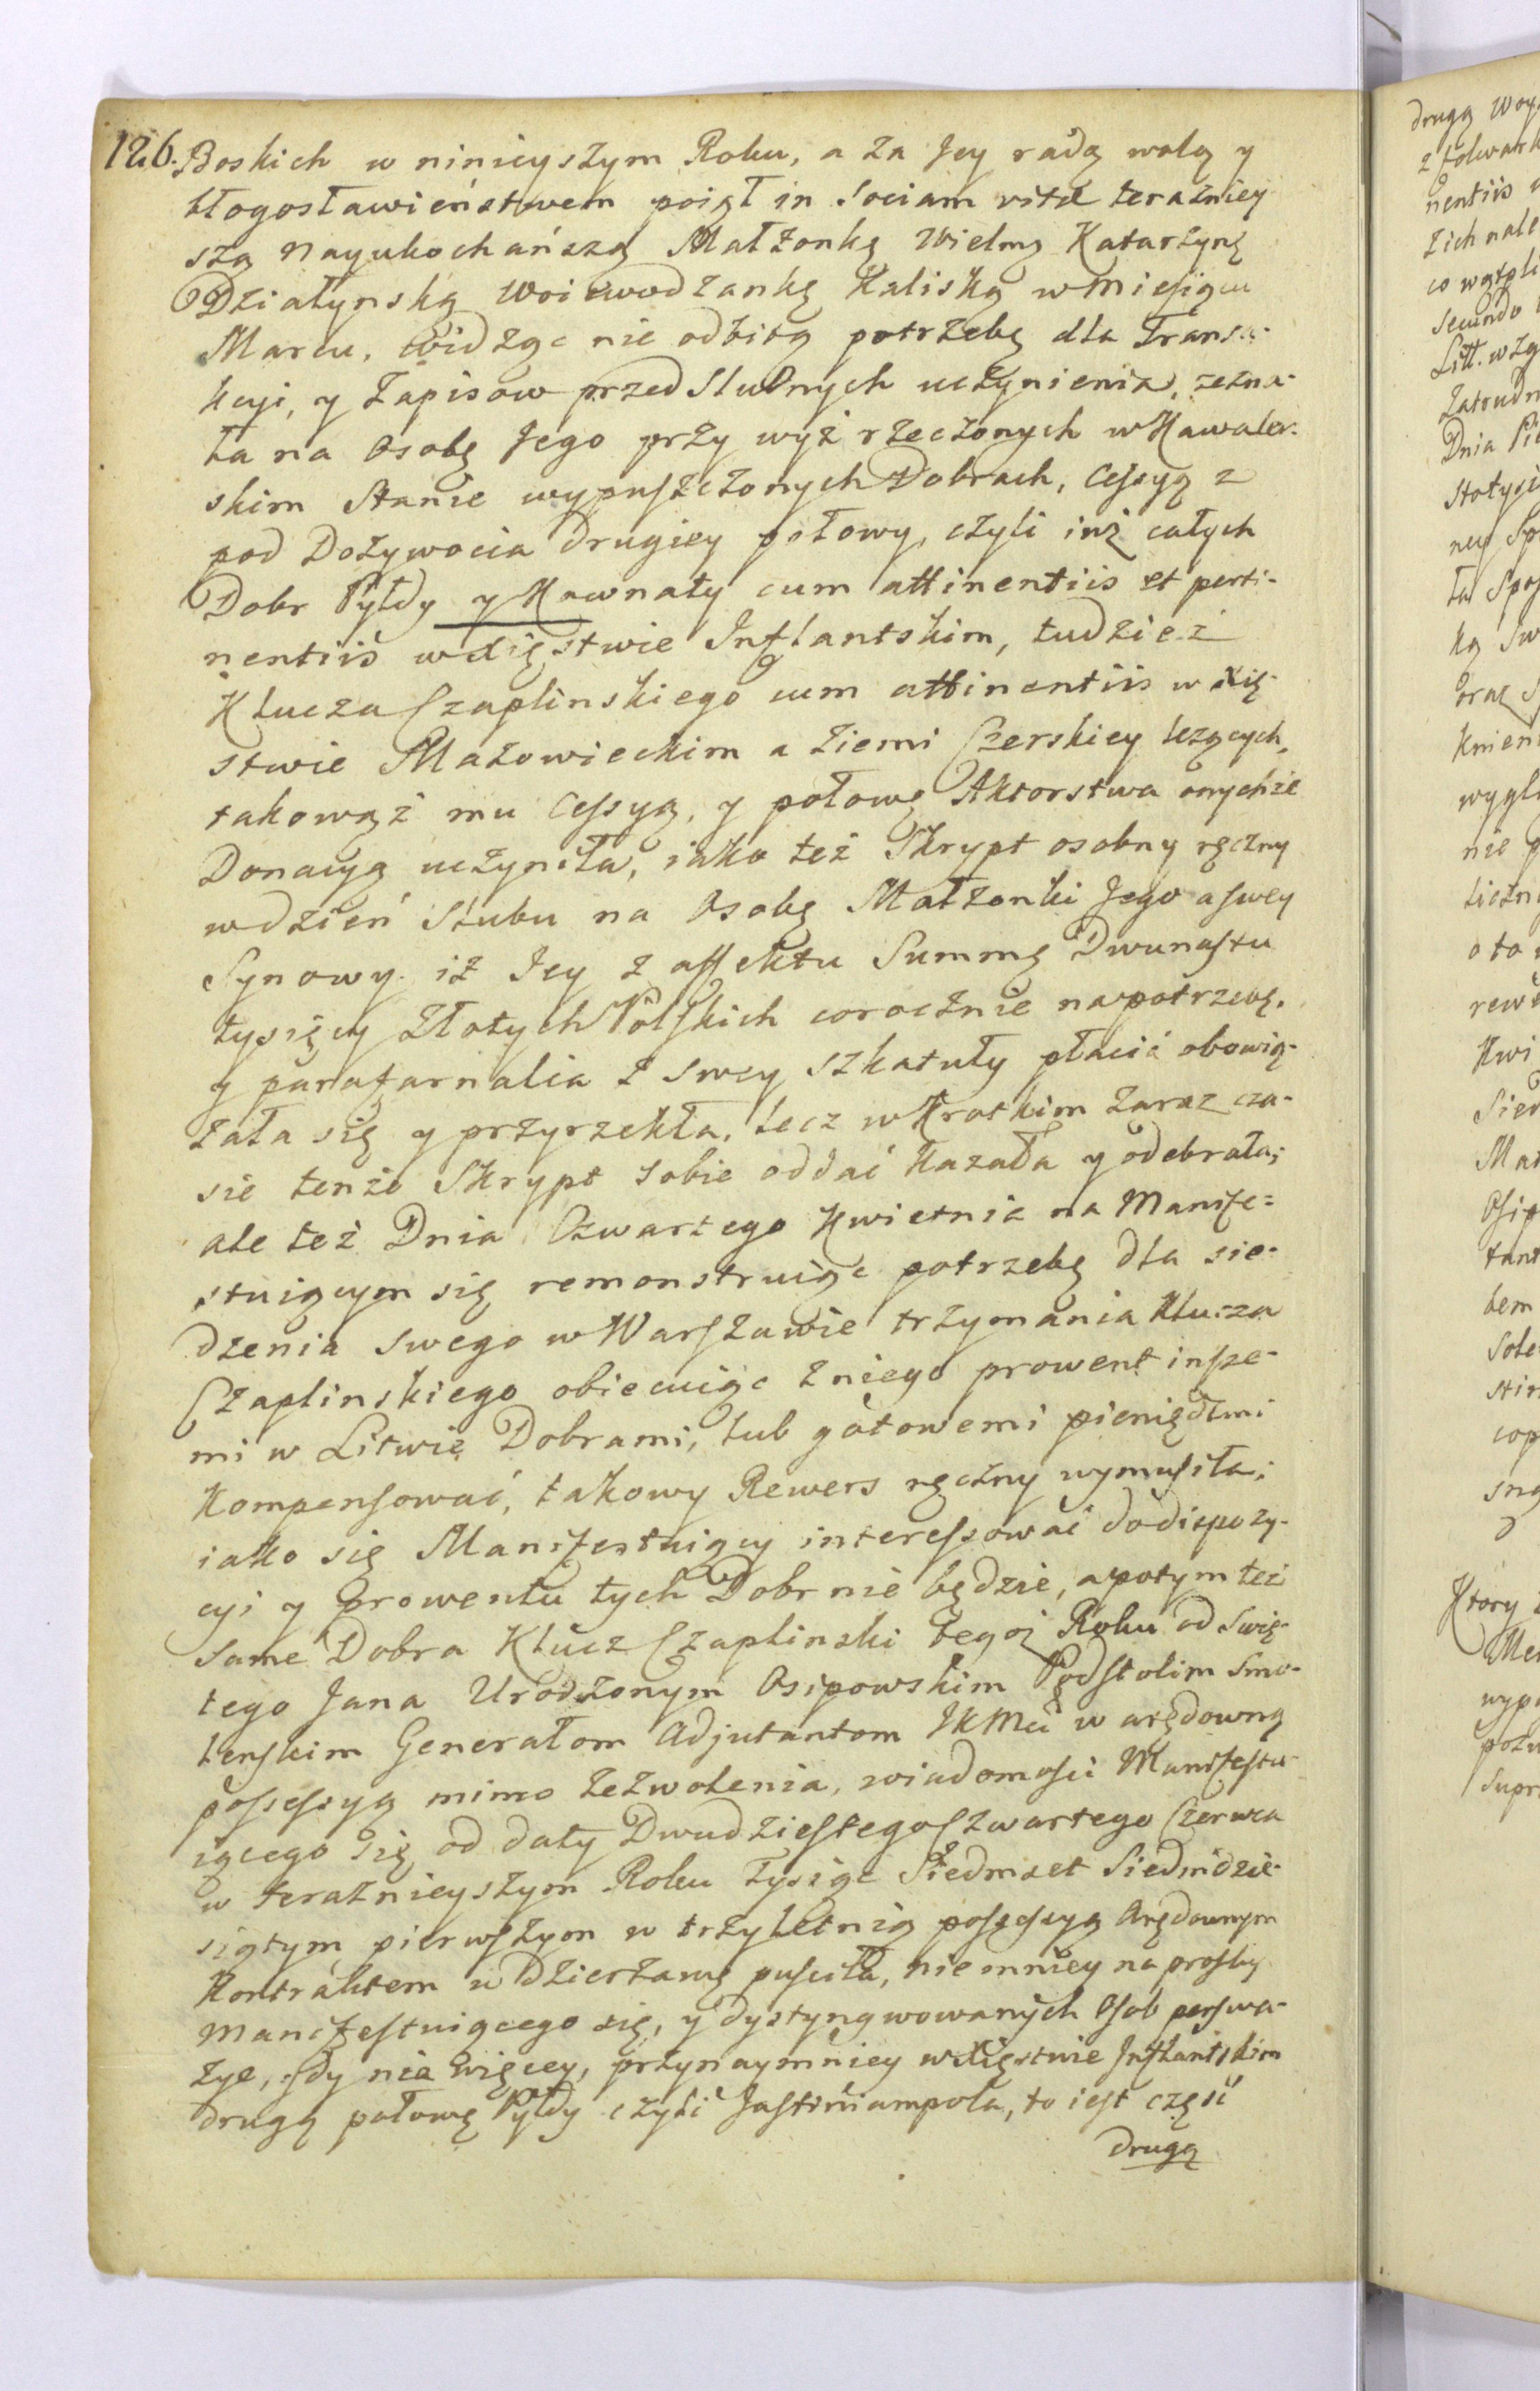 126. Boskich w ninieyszym Roku, a za Jey radą wolą y
błogosławieństwem poiął in Sociam vitæ teraźniey-
szą Nayukochańszą Małżonkę Wielmą Katarzynę
Działynską Woiewodzankę Kaliską w Miesiącu
Marcu, widząc nie odbitą potrzebę dla Transa-
kcyi, y Zapisow przed Slubnych uczynienia, zezna-
ła na Osobę Jego przy wyż rzeczonych w Kawaler-
skim Stanie wypuszczonych Dobrach, Cessyą z
pod Dożywocia drugiey połowy, czyli iuż całych
Dobr Pyłdy y Kownaty cum attinentiis et perti-
nentiis w Xięstwie Inflantskim, tudzież
Klucza Czaplinskiego cum attinentiis w Xię-
stwie Mazowieckim a Ziemi Czerskiey leżących,
takowąż mu Cessyą, y połowę Aktorstwa onychże
Donacyą uczyniła, iako też Skrypt osobny ręczny
w dzień Slubu na Osobę Małżonki Jego a swey
Synowy iż Jey z affektu Summę Dwunastu
tysięcy Złotych Polskich corocznie na potrzebę,
y parafarnalia z swey szkatuły płacić obowią-
zała się y przyrzekła, lecz w Krotkim zaraz cza-
sie tenże Skrypt sobie oddać kazała y odebrała;
ale też Dnia Czwartego Kwietnia na Manife-
stuiącym się remonstruiąc potrzebę dla sie-
dzenia swego w Warszawie trzymania Klucza
Czaplinskiego obiecuiąc z niego prowent insze-
mi w Litwie Dobrami, lub gotowemi pieniędzmi
Kompensować, takowy Rewers ręczny wymusiła;
iako się Manifestuiący interessować do dispozy-
cyi y Prowentu tych Dobr nie będzie, a potym też
same Dobra Klucz Czaplinski tegoż Roku od Swię-
tego Jana Urodzonym Osipowskim Podstolim Smo-
lenskim Generałom Adjutantom JKMci w arędowną
possessyą mimo zezwolenia, wiadomości Manifestu-
iącego się od daty Dwudziestego Czwartego Czerwca
w teraźnieyszym Roku Tysiąc Siedmset Siedmdzie-
siątym pierwszym w trzyletnią possessyą Arędownym
Kontraktem w dzierżawę puściła, niemniey na prozby
Manifestuiącego się, y dystyngwowanych Osob perswa-
zye, gdy nie więcey, przynaymniey w Xięstwie Inflantskim
drugą połowę Pyłdy czyli Justiniampola, to iest część
drugą